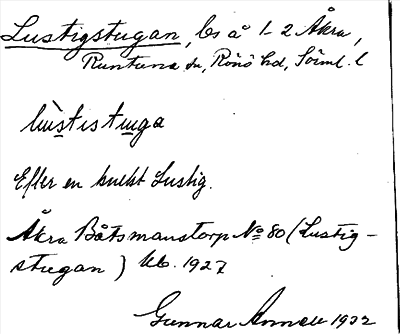 Lustigstugan, ls å 1-2 Åkra,
Runtuna sn, Rönö hd, Söml. l
lùstistuga
Efter en knekt Lustig.
Åkra Båtsmanstorp No 80 (Lustig-
stugan) Ub. 1927
Gunnar 1932